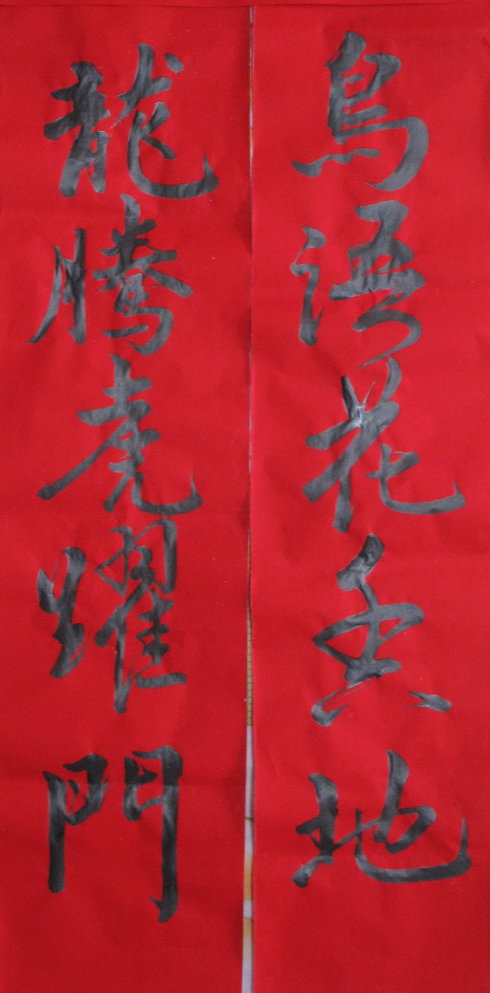 鳥語花香地
龍騰虎躍門